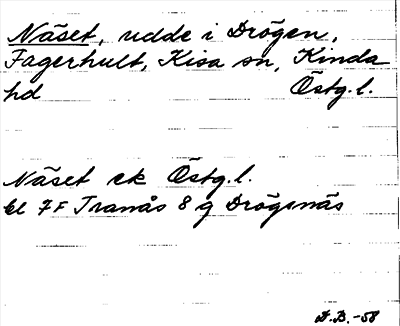 Näset, udde i Drögen,
Fagerhult, Kisa sn, Kinda
hd Östg.l.
Näset ek Östg.l.
bl 7F Tranås 8 g Drögsnäs
D.B.-58